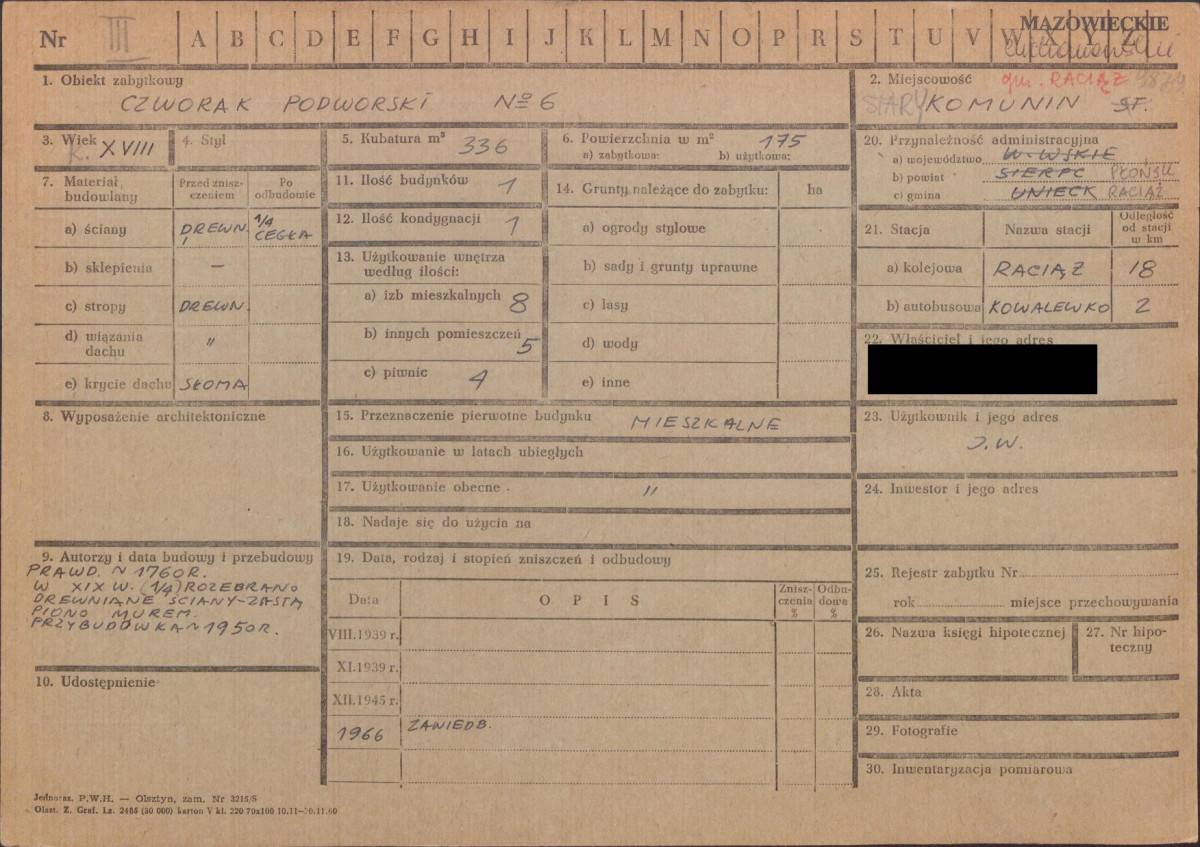 Nr III A B C D E F G H I J K L M N O P R S T U V W X Y Z
MAZOWIECKIE
ciechanowskie
1. Obiekt zabytkowy
CZWORAK PODWORSKI No 6
2. Miejscowość gm. RACIĄŻ
STARY KOMUNIN
3. Wiek K. XVIII
4. Styl
5. Kubatura m³ 336
6. Powierzchnia w m² 175
a) zabytkowa: b) użytkowa:
7. Materiał budowlany
Przed zniszczeniem
Po odbudowie
a) ściany DREWN. 1/4 CEGŁA
b) sklepienia —
c) stropy DREWN.
d) wiązania dachu "
e) krycie dachu SŁOMA
8. Wyposażenie architektoniczne
9. Autorzy i data budowy i przebudowy
PRAWD. ~ 1760 R.
W XIX W. (1/4) ROZEBRANO
DREWNIANE ŚCIANY-ZASTĄ
PIONO MUREM.
PRZYBUDÓWKA ~ 1950 R.
10. Udostępnienie
11. Ilość budynków 1
12. Ilość kondygnacji 1
13. Użytkowanie wnętrza
według ilości:
a) izb mieszkalnych 8
b) innych pomieszczeń 5
c) piwnic 4
14. Grunty należące do zabytku: ha
a) ogrody stylowe
b) sady i grunty uprawne
c) lasy
d) wody
e) inne
15. Przeznaczenie pierwotne budynku MIESZKALNE
16. Użytkowanie w latach ubiegłych
17. Użytkowanie obecne "
18. Nadaje się do użycia na
19. Data, rodzaj i stopień zniszczeń i odbudowy
Data OPIS Zniszczenia % Odbudowa %
VIII.1939 r.
XI.1939 r.
XII.1945 r.
1966 ZANIEDB.
20. Przynależność administracyjna
a) województwo W-WSKIE
b) powiat SIERPC PŁOŃSK
c) gmina UNIECK RACIĄŻ
21. Stacja Nazwa stacji Odległość od stacji w km
a) kolejowa RACIĄŻ 18
b) autobusowa KOWALEWKO 2
22. Właściciel i jego adres
23. Użytkownik i jego adres
J.W.
24. Inwestor i jego adres
25. Rejestr zabytku Nr
rok miejsce przechowywania
26. Nazwa księgi hipotecznej
27. Nr hipoteczny
28. Akta
29. Fotografie
30. Inwentaryzacja pomiarowa
Jednoraz. P.W.H. — Olsztyn, zam. Nr 3215/S
Olszt. Z. Graf. Lz. 2485 (30 000) karton V kl. 220 70x100 10.11—30.11.60